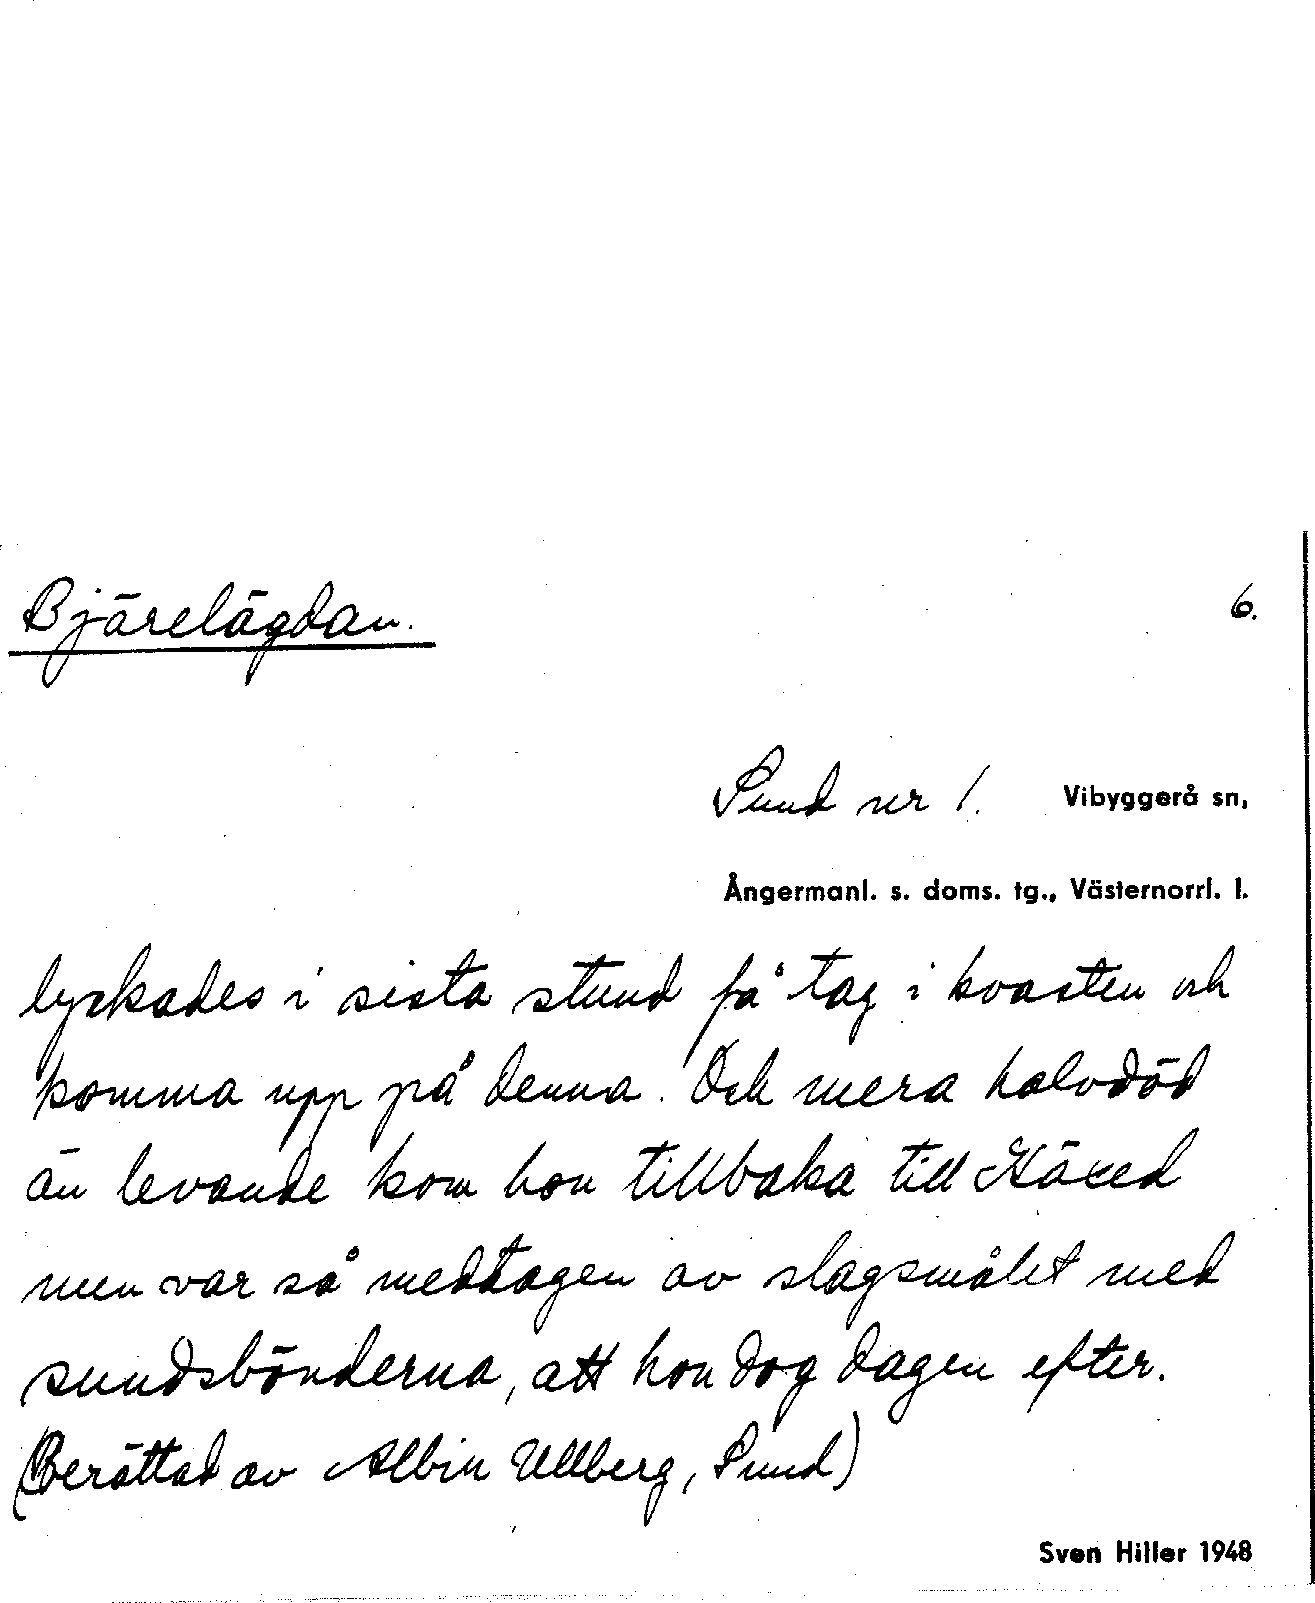 Bjärelägdan.
6.
Sund nr 1. Vibyggerå sn,
Ångermanl. s. doms. tg., Västernorrl. l.
lyckades i sista stund få tag i kvasten och
komma upp på denna. Och mera halvdöd
än levande kom hon tillbaka till
men var så medtagen av slagsmålet med
sundsbönderna, att hon dog dagen efter.
(Berättad av Albin Ullberg, Sund)
Sven Hiller 1948